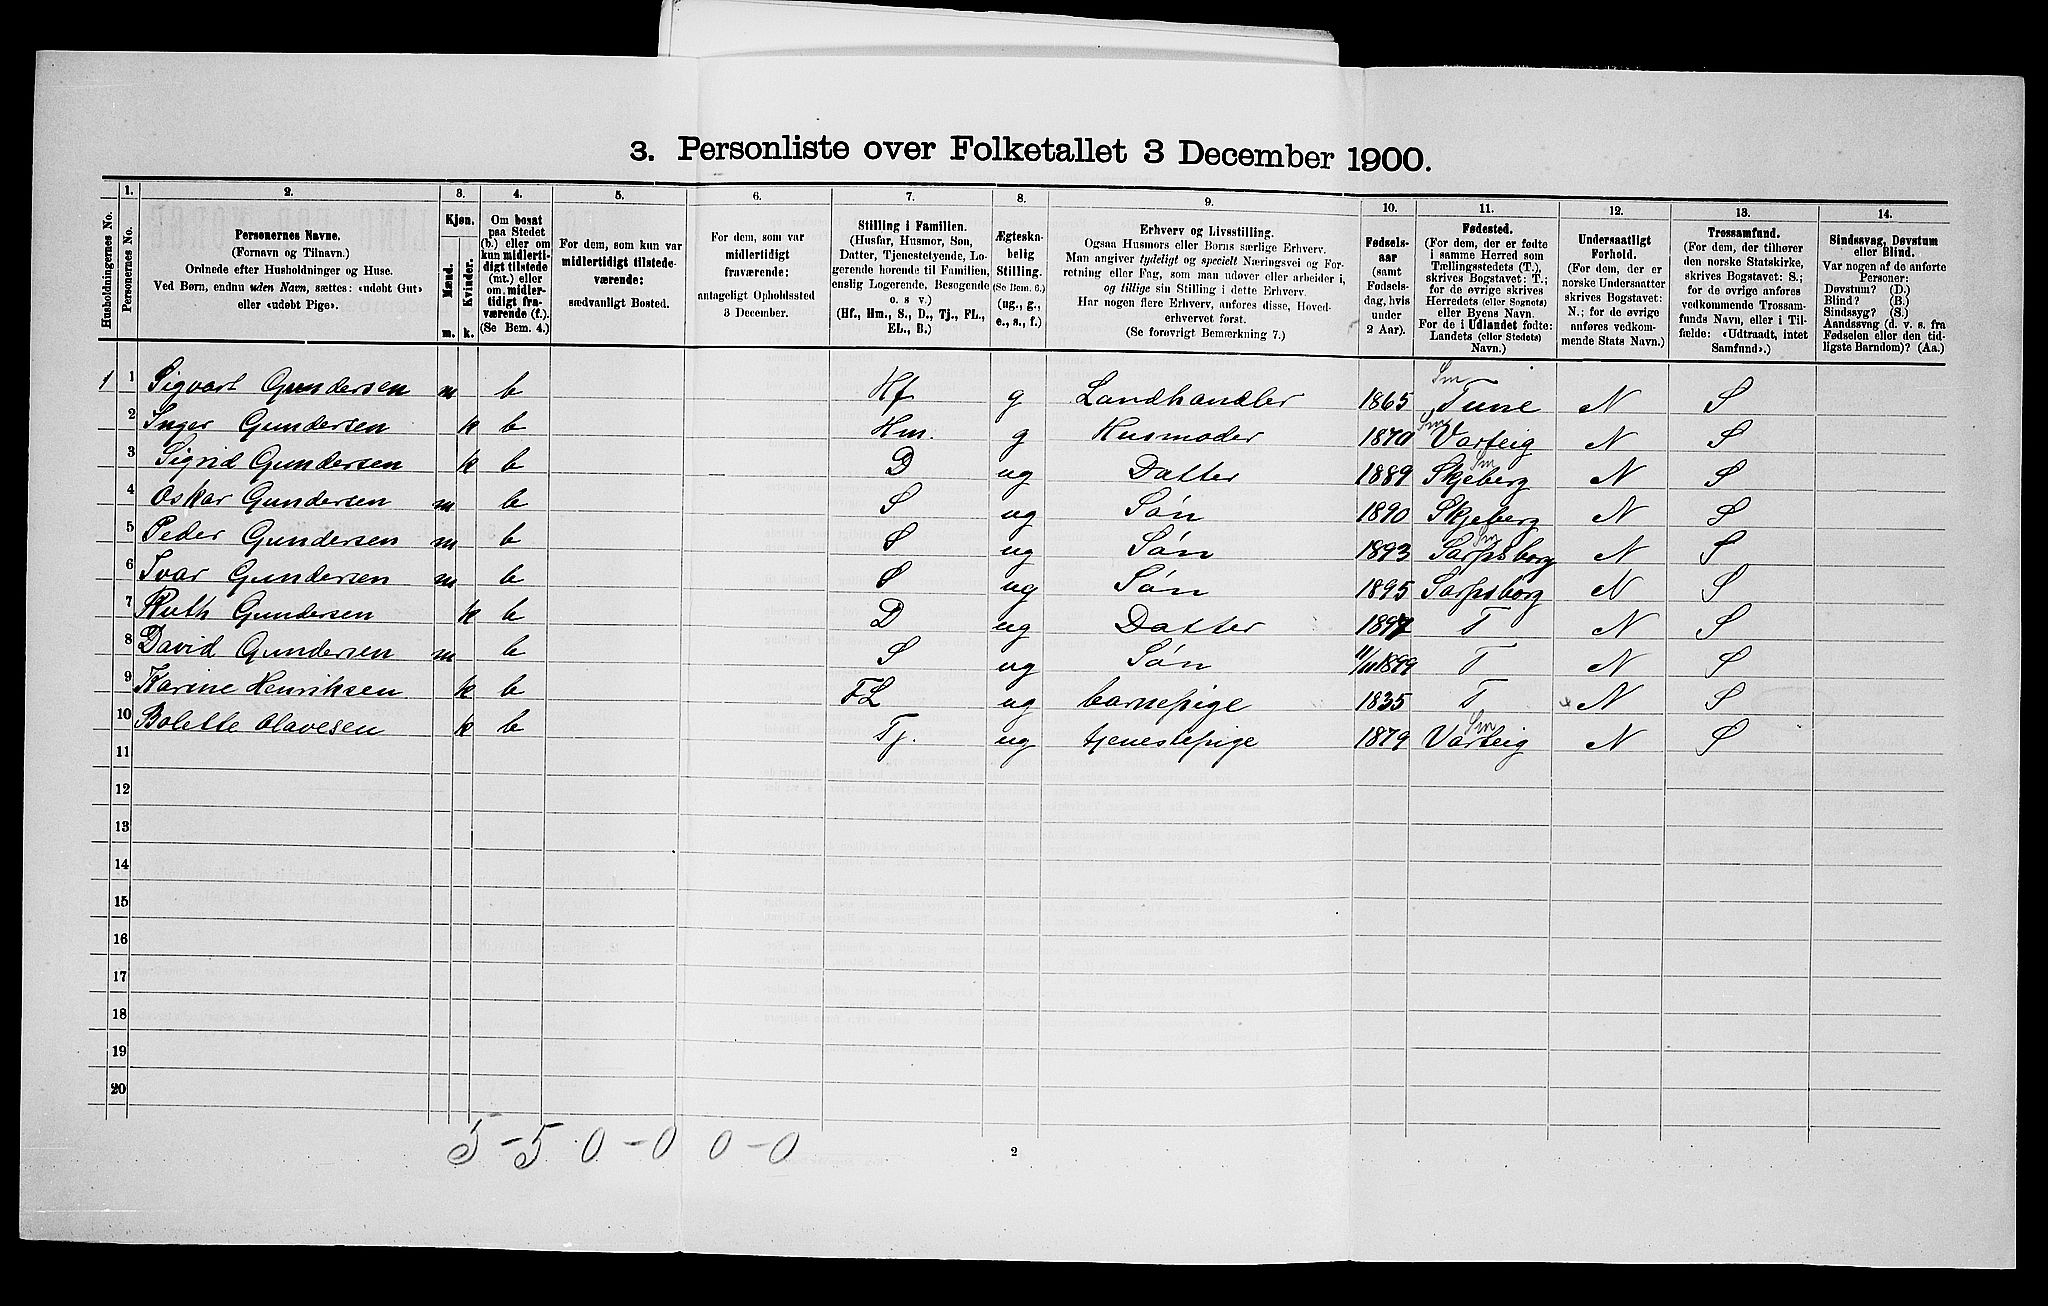 3. Personliste over Folketallet 3 December 1900.
Husholdningernes No.
1. Personernes No.
2. Personernes Navne. (Fornavn og Tilnavn.) Ordnede efter Husholdninger og Huse. Ved Børn, endnu uden Navn, sættes: «udøbt Gut» eller «udøbt Pige».
3. Kjøn. Mænd. m. Kvinder. k.
4. Om bosat paa Stedet (b.) eller om kun midlertidigt tilstede (mt.) eller om midlertidigt fraværende (f.). (Se Bem. 4.)
5. For dem, som kun var midlertidigt tilstedeværende: sædvanligt Bosted.
6. For dem, som var midlertidigt fraværende: antageligt Opholdssted 3 December.
7. Stilling i Familien. (Husfar, Husmor, Søn, Datter, Tjenestetyende, Logerende hørende til Familien, enslig Logerende, Besøgende o. s v.) (Hf., Hm., S., D., Tj., FL., EL., B.)
8. Ægteskabelig Stilling. (Se Bem. 6.) (ug., g., e., s., f.)
9. Erhverv og Livsstilling. Ogsaa Husmors eller Børns særlige Erhverv. Man angiver tydeligt og specielt Næringsvei og Forretning eller Fag, som man udøver eller arbeider i, og tillige sin Stilling i dette Erhverv. Har nogen flere Erhverv, anføres disse, Hovederhvervet først. (Se forøvrigt Bemærkning 7.)
10. Fødselsaar (samt Fødselsdag, hvis under 2 Aar).
11. Fødested. (For dem, der er fødte i samme Herred som Tællingsstedets (T.), skrives Bogstavet: T.; for de øvrige skrives Herredets (eller Sognets) eller Byens Navn. For de i Udlandet fødte: Landets (eller Stedets) Navn.)
12. Undersaatligt Forhold. (For dem, der er norske Undersaatter skrives Bogstavet: N.; for de øvrige anføres vedkommende Stats Navn.)
13. Trossamfund. (For dem, der tilhører den norske Statskirke, skrives Bogstavet: S.; for de øvrige anføres vedkommende Trossamfunds Navn, eller i Tilfælde: «Udtraadt, intet Samfund».)
14. Sindssvag, Døvstum eller Blind. Var nogen af de anførte Personer: Døvstum? (D.) Blind? (B.) Sindssyg? (S.) Aandssvag (d. v. s. fra Fødselen eller den tidligste Barndom)? (Aa.)
1 1 Sigvart Gundersen m b Hf g Landhandler 1865 Sm Tune N S
2 Inger Gundersen k b Hm. g Husmoder 1870 Sm Varteig N S
3 Sigrid Gundersen k b D ug Datter 1889 Sm Skjeberg N S
4 Oskar Gundersen m b S ug Søn 1890 Skjeberg N S
5 Peder Gundersen m b S ug Søn 1893 Sm Sarpsborg N S
6 Ivar Gundersen m b S ug Søn 1895 Sarpsborg N S
7 Ruth Gundersen k b D ug Datter 1897 T N S
8 David Gundersen m b S ug Søn 11/11 1899 T N S
9 Karine Henriksen k b FL ug barnepige 1835 T N S
10 Bolette Olavesen k b Tj. ug tjenestepige 1879 Sm Varteig N S
11
12
13
14
15
16
17
18
19
20
5 - 5 0 - 0 0 - 0
2